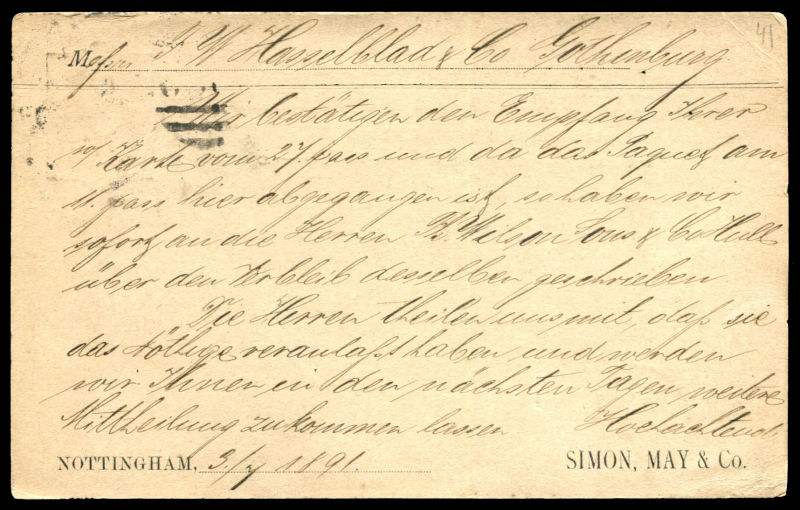 41
Messrs F W Hasselblad & Co Gothenburg
Wir bestätigen den Empfang Ihrer
w/ Karte vom 27. pass und da das Paquet am
11. pass hier abgegangen ist, so haben wir
sofort an die Herren T. Wilson Sons & Co Hull
über den Verbleib desselben geschrieben
Die Herren theilen uns mit, daß sie
das Nöthige veranlaßt haben und werden
wir Ihnen in den nächsten Tagen weitere
Mittheilung zukommen lassen Hochachtend
NOTTINGHAM, 1891. SIMON, MAY & Co.